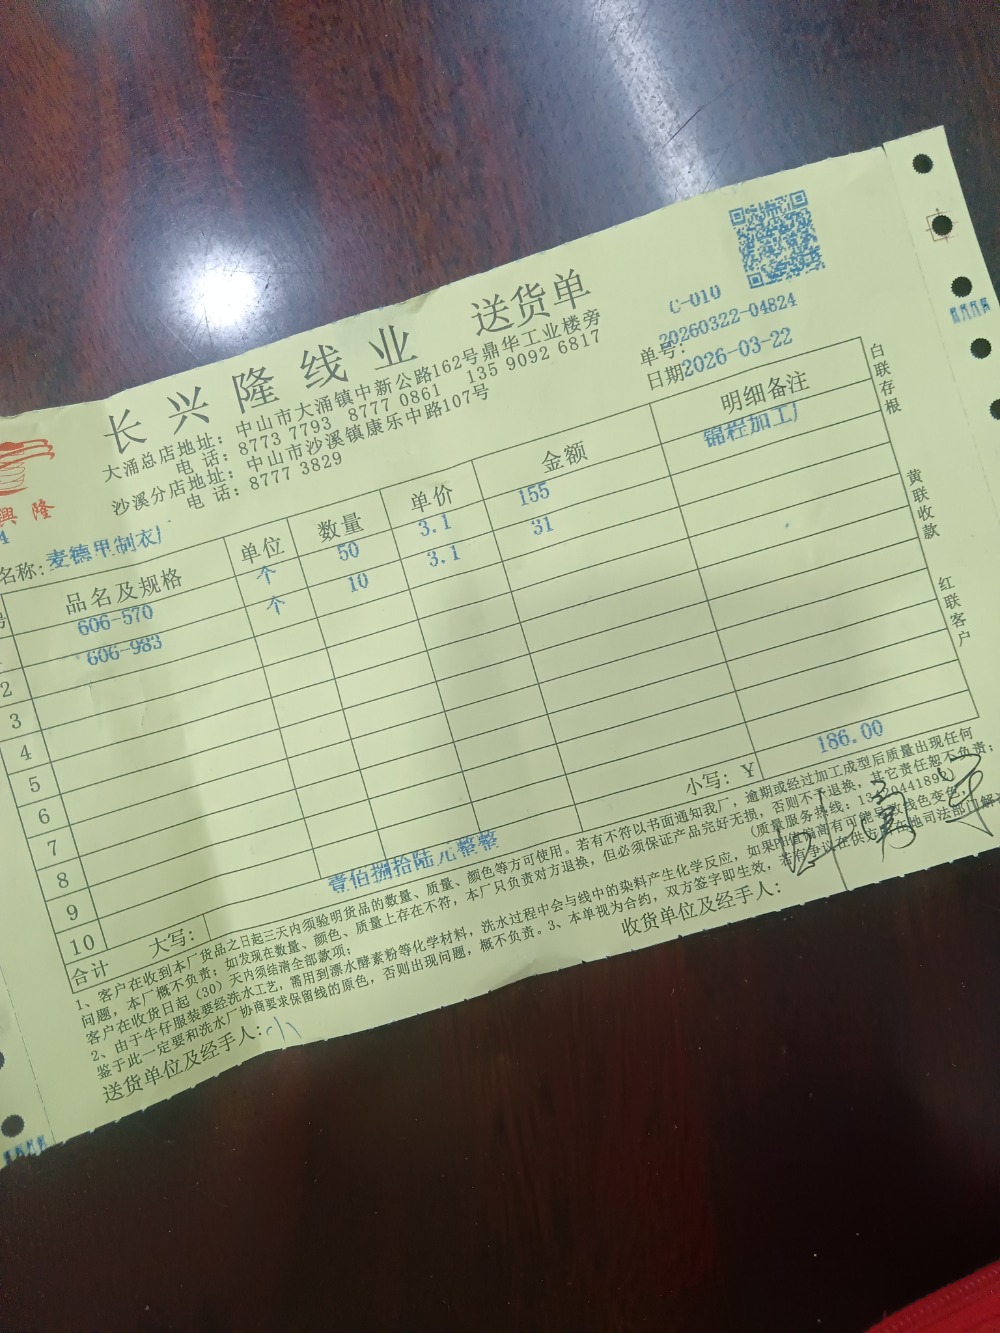 长兴隆线业 送货单
C-010
大涌总店地址：中山市大涌镇中新公路162号鼎华工业楼旁
电话：8773 7793 8777 0861 135 9092 6817
沙溪分店地址：中山市沙溪镇康乐中路107号
电话：8777 3829
单号：20260322-04824
日期2026-03-22
興隆
名称：麦德甲制衣厂
品名及规格 单位 数量 单价 金额 明细备注
606-570 个 50 3.1 155 锦程加工厂
606-983 个 10 3.1 31
2
3
4
5
6
7
8
9
10
小写：￥ 186.00
合计 大写： 壹佰捌拾陆元整整
白联存根
黄联收款
红联客户
1、客户在收到本厂货品之日起三天内须验明货品的数量、质量、颜色等方可使用。若有不符以书面通知我厂，逾期或经过加工成型后质量出现任何
问题，本厂概不负责；如发现在数量、颜色、质量上存在不符，本厂只负责对方退换，但必须保证产品完好无损，否则不予退换，其它责任恕不负责；
客户在收货日起（30）天内须结清全部款项；
2、由于牛仔服装要经洗水工艺，需用到漂水酵素粉等化学材料，洗水过程中会与线中的染料产生化学反应，如果PH值偏高有可能导致线色变色，
鉴于此一定要和洗水厂协商要求保留线的原色，否则出现问题，概不负责。3、本单视为合约，双方签字即生效，若有争议在供方所在地司法部门解决
送货单位及经手人：
收货单位及经手人：